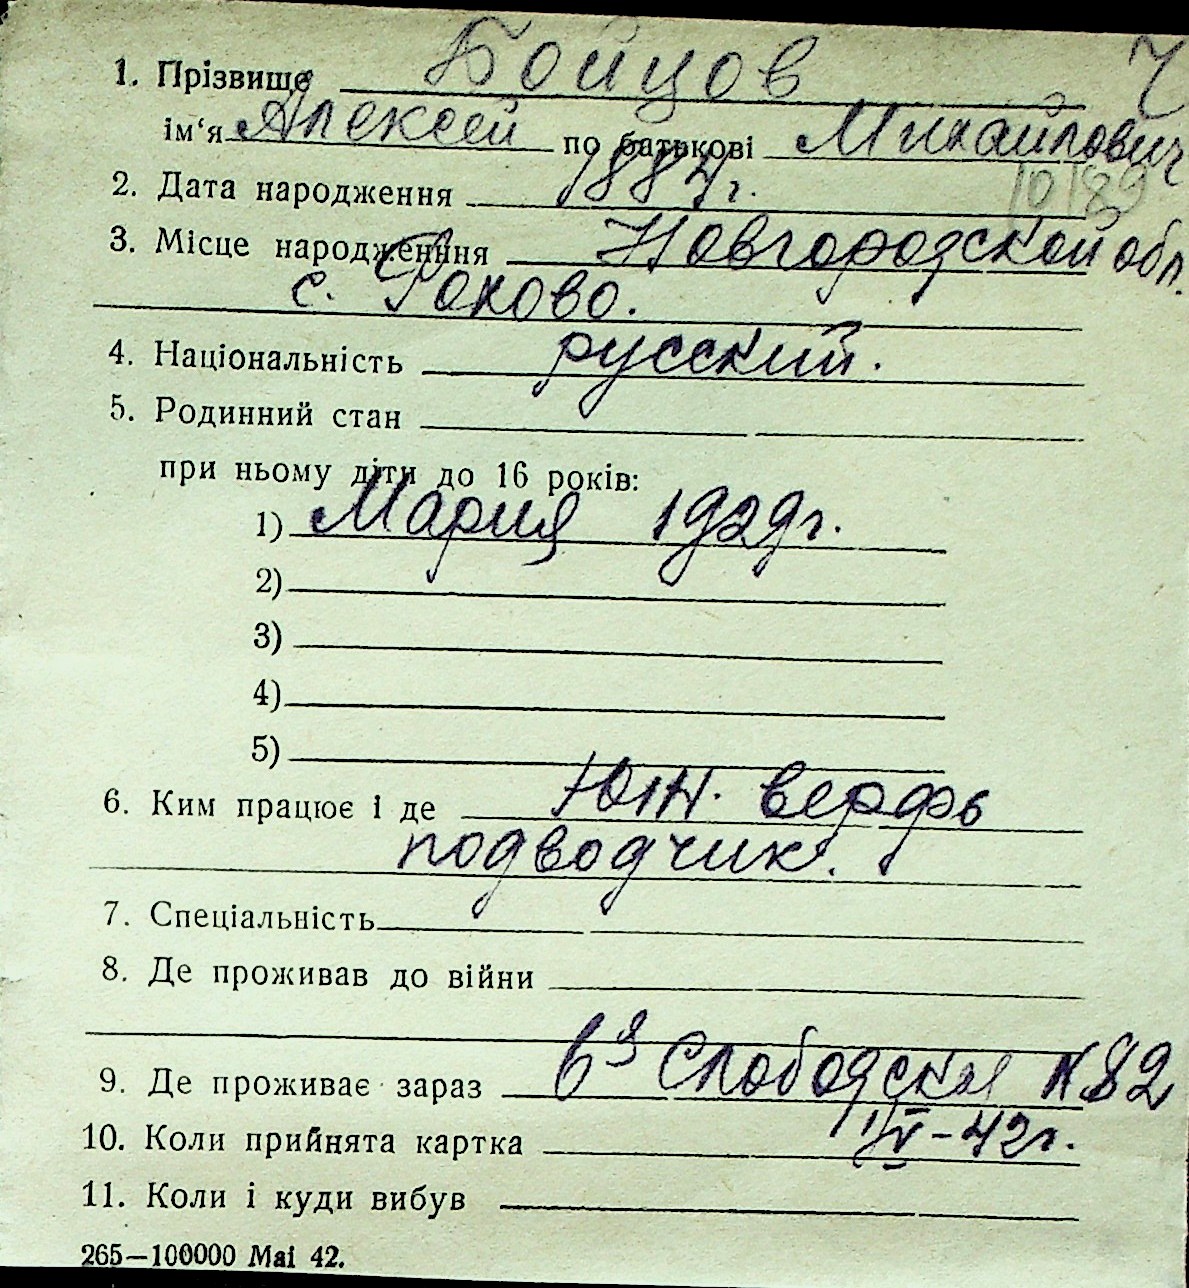 1. Прізвище Бойцов Ч
ім'я Алексей по батькові Михайлович
2. Дата народження 1884г. 10189
3. Місце народженння Новгородской обл.
с. Рохово.
4. Національність русский.
5. Родинний стан
при ньому діти до 16 років:
1) Мария 1929г.
2)
3)
4)
5)
6. Ким працює і де Южн. верфь
подводчик.
7. Спеціальність
8. Де проживав до війни
9. Де проживає зараз 6я Слободская № 82
10. Коли прийнята картка V-42г.
11. Коли і куди вибув
265—100000 Mai 42.